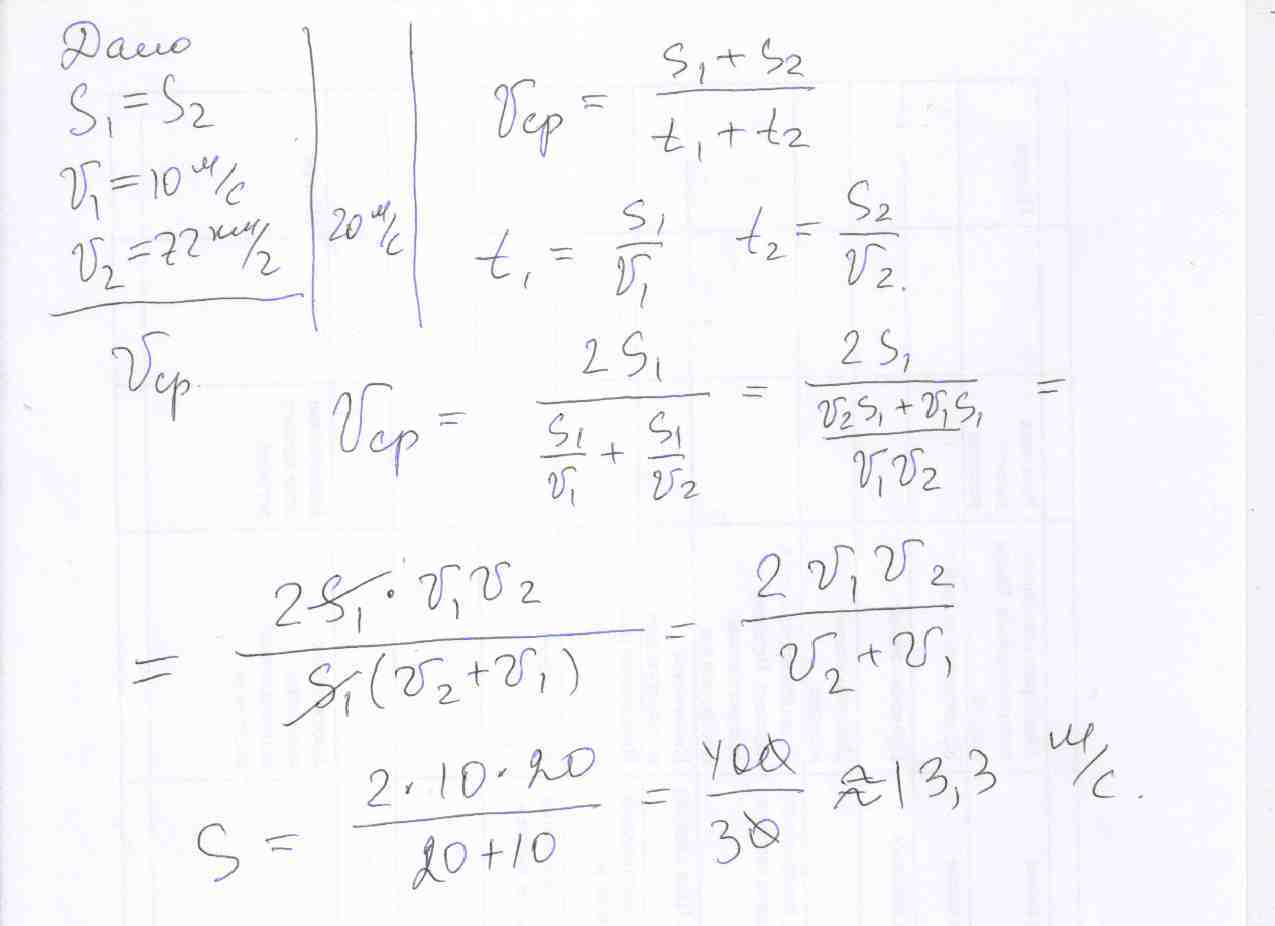 Дано
S₁ = S₂
v₁ = 10 м/с
v₂ = 72 км/г
20 м/с
vср.
vср = (S₁ + S₂) / (t₁ + t₂)
t₁ = S₁ / v₁ t₂ = S₂ / v₂.
vср = 2S₁ / (S₁/v₁ + S₁/v₂) = 2S₁ / ((v₂S₁ + v₁S₁) / v₁v₂) =
= 2S₁ · v₁v₂ / S₁(v₂ + v₁) = 2v₁v₂ / (v₂ + v₁)
S = 2 · 10 · 20 / (20 + 10) = 400 / 30 ≈ 13,3 м/с.